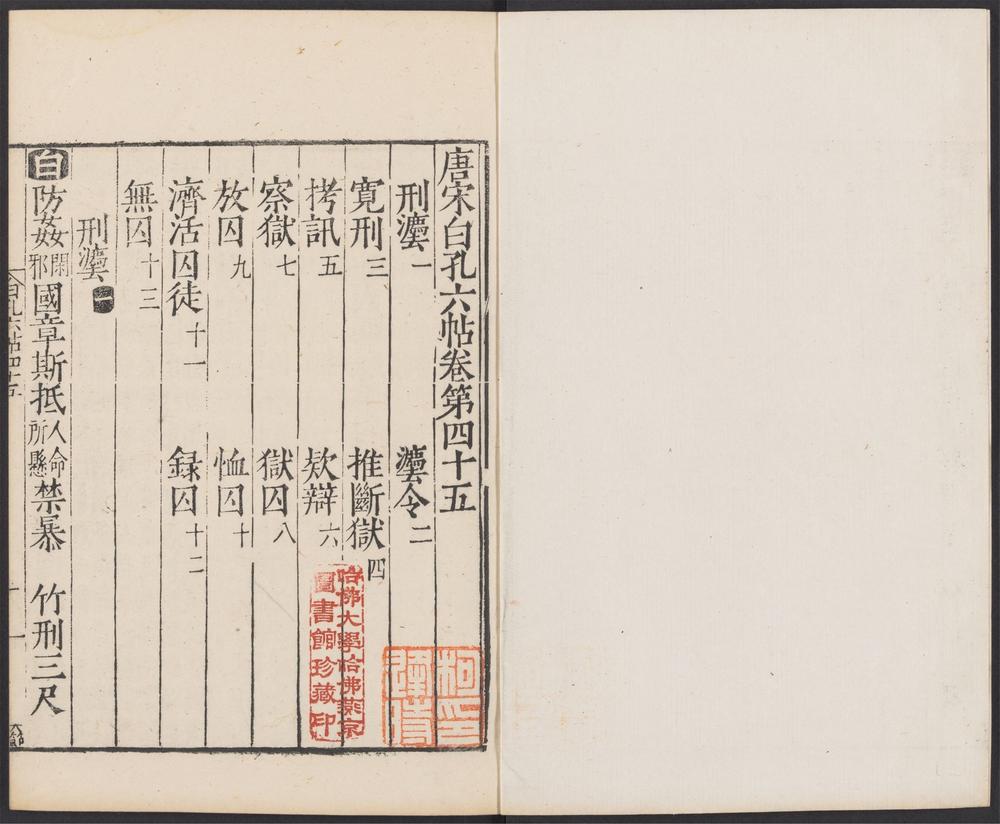 唐宋白孔六帖卷第四十五
刑灋一　灋令二
寬刑三　推斷獄四
拷訊五　欵辯六
察獄七　獄囚八
放囚九　恤囚十
濟活囚徒十一　録囚十二
無囚十三
刑灋一
白　防姦閑邪國章斯抵人命所懸禁暴　竹刑三尺
白孔六帖四十五
一
哈佛大學哈佛燕京
圖書館珍藏印